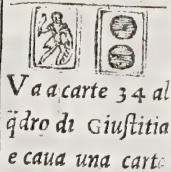 V a a carte 34 al
q̃dro di Giuſtitia
e caua una carta